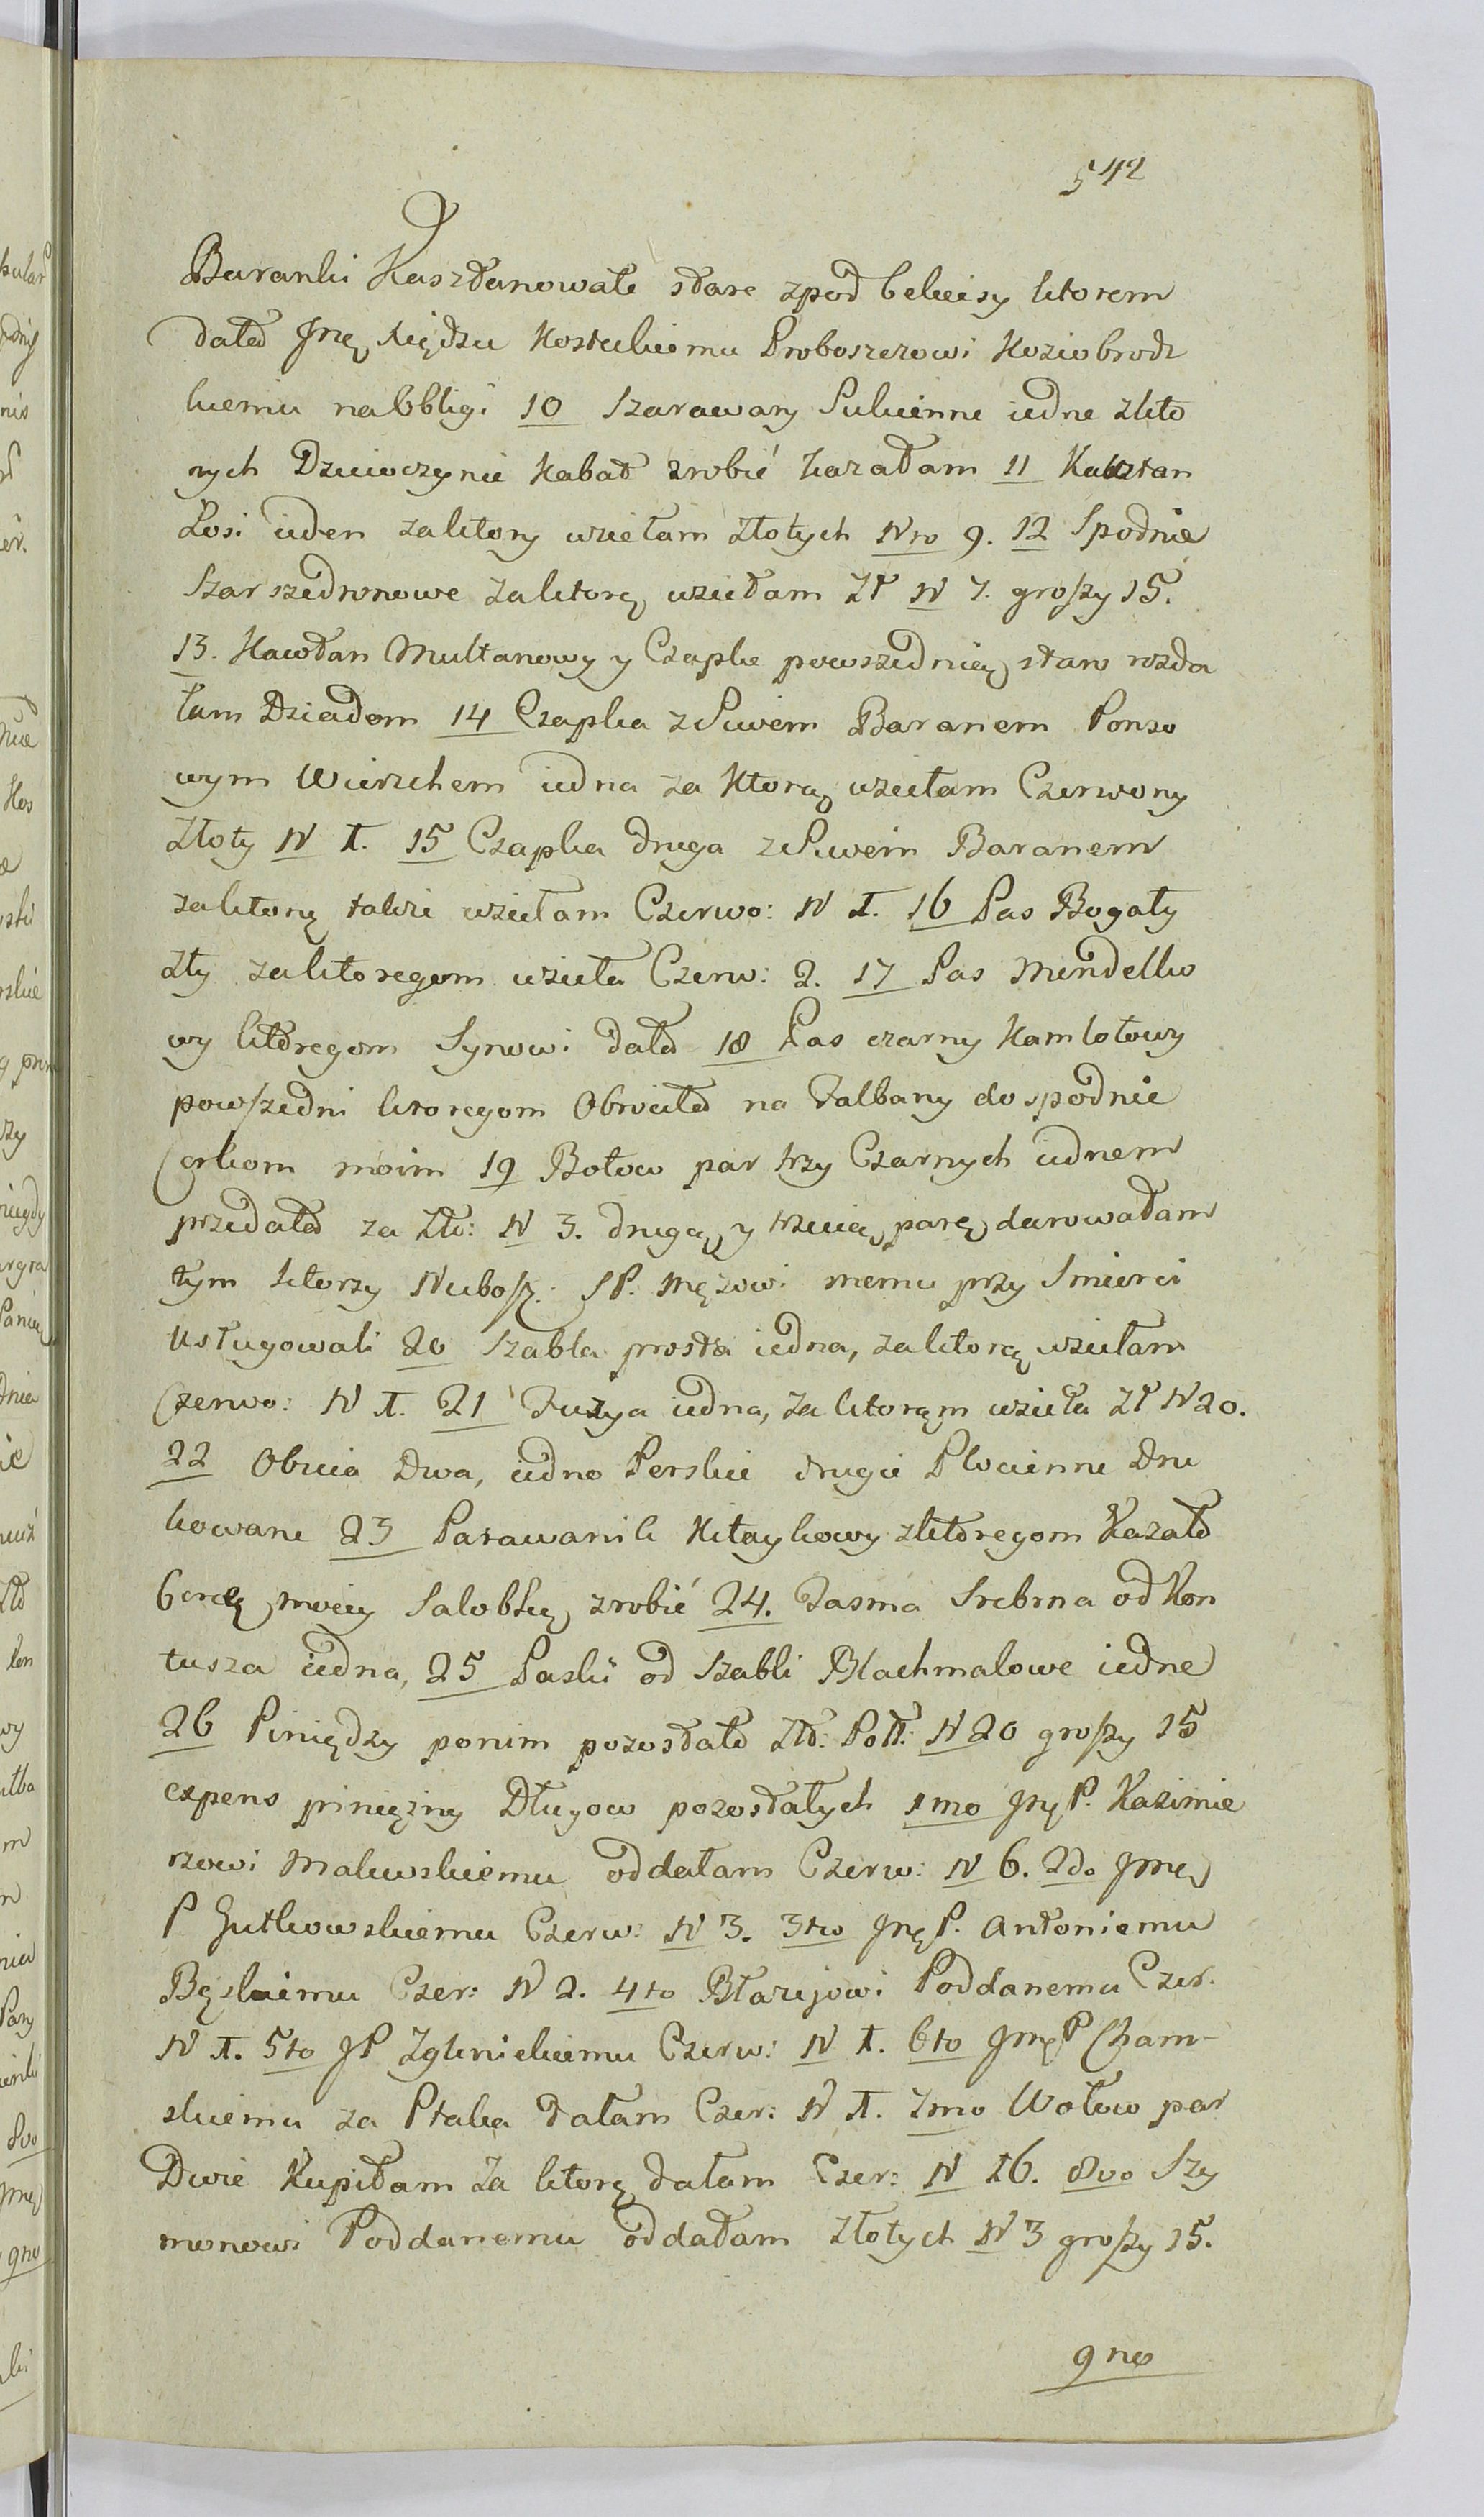 542
Baranki Kasztanowate stare zpod bekiesy ktorem
dała Jmę Xiędzu Kostukiemu Proboszczowi Koziobrodz
kiemu na Obligi 10 Szarawary Sukienne iedne zkto
rych Dziewczynie Kabat zrobić kazałam 11 Kaftan
Łosi ieden zaktory wziełam złotych Nro 9. 12 Spodnie
Szarszedronowe zaktorę wziełam Zł N 7. groszy 15.
13. Kawtan Multanowy y Czapke powszednią staro rozda
łam Dziadom 14 Czapka z Siwem Baranem Ponso
wym Wierzchem iedna za ktorą wziełam Czerwony
Złoty N I. 15 Czapka druga z Siwem Baranem
zaktorę takze wziełam Czerwo: N I. 16 Pas Bogaty
zły zaktoregom wzieła Czerw: 2. 17 Pas Mendelko
wy ktoregom Synowi dała 18 Pas czarny Kamlotowy
powszedni ktoregom Obrociła na Falbany do spodnic
Corkom moim 19 Botow par trzy Czarnych iednem
przedała za Zło: N 3. drugą, y trzecią, parę darowałam
tym ktorzy Nieboſz: SP. Mężowi memu przy Smierci
usługowali 20 Szabla prosta iedna, zaktorą wziełam
Czerwo: N I. 21 Fuzya iedna, za ktorąm wzieła Zł N 20.
22 Obicia Dwa, iedno Perskie drugie Płocienne Dru
kowane 23 Parawanik Kitaykowy zktoregom Kazała
Corcę moiey Salobkę zrobić 24. Tasma Srebrna od Kon
tusza iedna, 25 Paski od Szabli Blachmalowe iedne
26 Piniędzy ponim pozostało Zło: Pol: N 20 groszy 15
expens pinięzny Długow pozostałych 1mo Jmę P. Kazimie
rzowi Malewskiemu oddałam Czerw: N 6. 2do Jmę
P Gutkowskiemu Czerw: N 3. 3tio Jmę P. Antoniemu
Bęskiemu Czer: N 2. 4to Błazejowi Poddanemu Czer.
N I. 5to JP Zglinickiemu Czerw: N I. 6to Jmę P Cham-
skiemu za Ptaka dałam Czer: N I. 7mo Wołow par
Dwie Kupiłam Za ktorę dałam Czer: N 16. 8vo Szy
monowi Poddanemu oddałam Złotych N 3 groszy 15.
9no